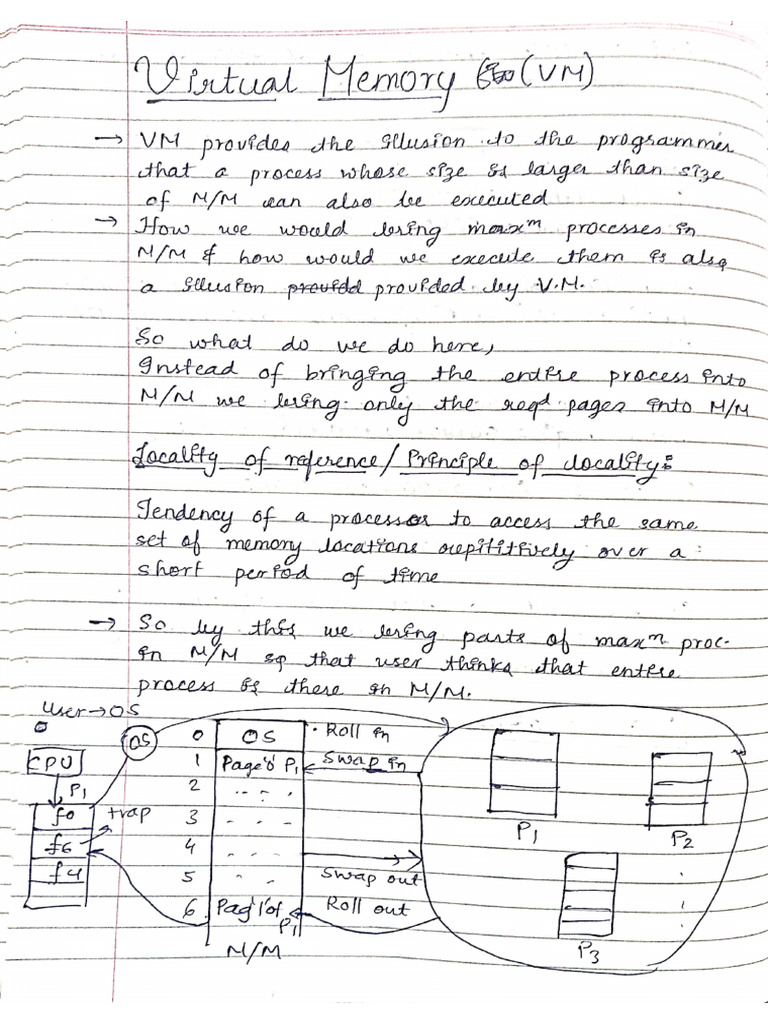 Virtual Memory (VM)
→ VM provides the illusion to the programmer
that a process whose size is larger than size
of M/M can also be executed
→ How we would bring maxᵐ processes in
M/M & how would we execute them is also
a illusion provided by V.M.
So what do we do here,
Instead of bringing the entire process into
M/M we bring only the reqᵈ pages into M/M
Locality of reference/Principle of locality:
Tendency of a processor to access the same
set of memory locations repititively over a
short period of time
→ So by this we bring parts of maxᵐ proc.
in M/M so that user thinks that entire
process is there in M/M.
user→OS
0
CPU
P1
f0
f6
f4
trap
OS
0 OS
1 Page 0 P1
2
3
4
5
6 Pag'1'of P1
M/M
Roll in
Swap in
Swap out
Roll out
P1
P2
P3